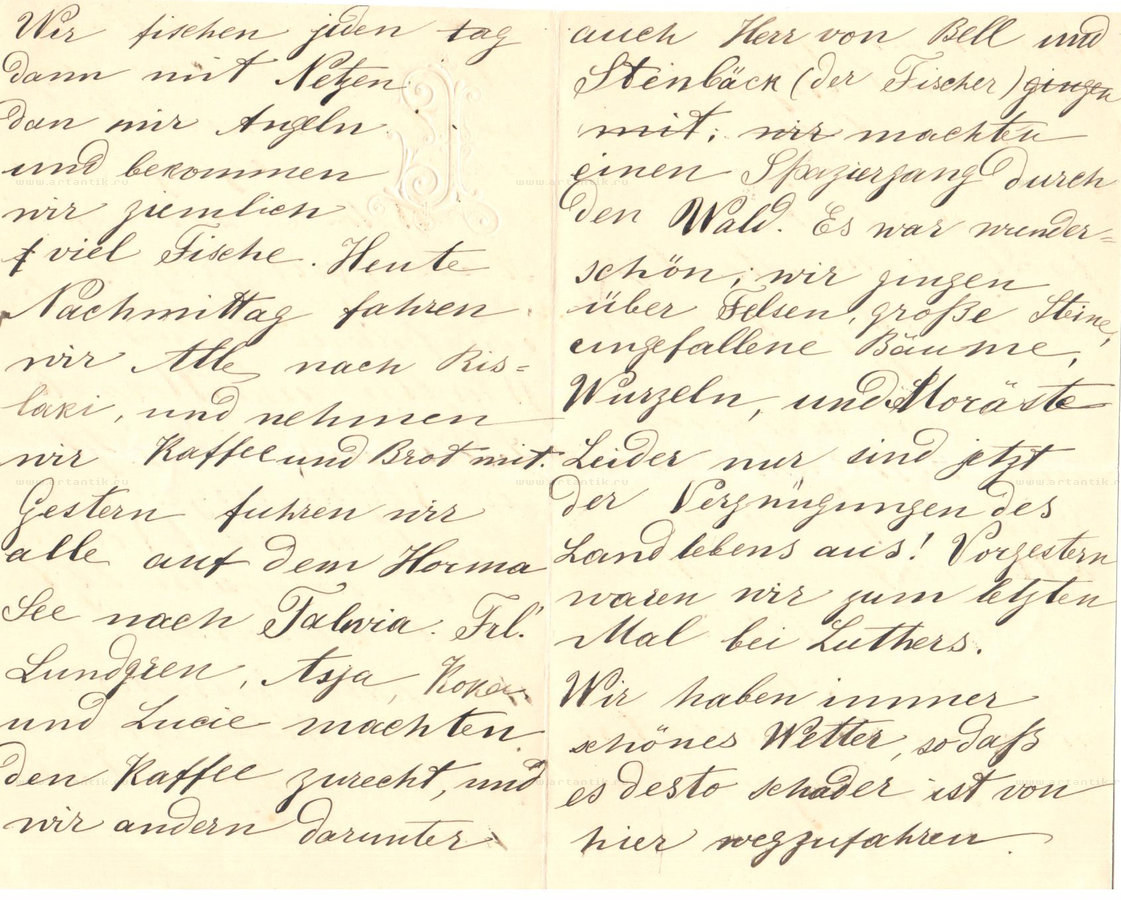 Wir fischen jeden tag
dann mit Netzen
dan mir Angeln
und bekommen
wir ziemlich
viel Fische. Heute
Nachmittag fahren
wir Alle nach Kis=
laki, und nehmen
wir Kaffee und Brot mit.
Gestern fuhren wir
alle auf dem Horma
See nach Talwia. Frl.
Lundgren, Asja, Koka
und Lucie machten
den Kaffee zurecht, und
wir andern darunter
auch Herr von Bell und
Steinbäck (der Fischer) gingen
mit; wir machten
einen Spaziergang durch
den Wald. Es war wunder=
schön; wir gingen
über Felsen, große Steine,
umgefallene Bäume,
Wurzeln, und Moräste
Leider nur sind jetzt
der Vergnügungen des
Landlebens aus! Vorgestern
waren wir zum letzten
Mal bei Luthers.
Wir haben immer
schönes Wetter, sodaß
es desto schader ist von
hier wegzufahren.
www.artantik.ru